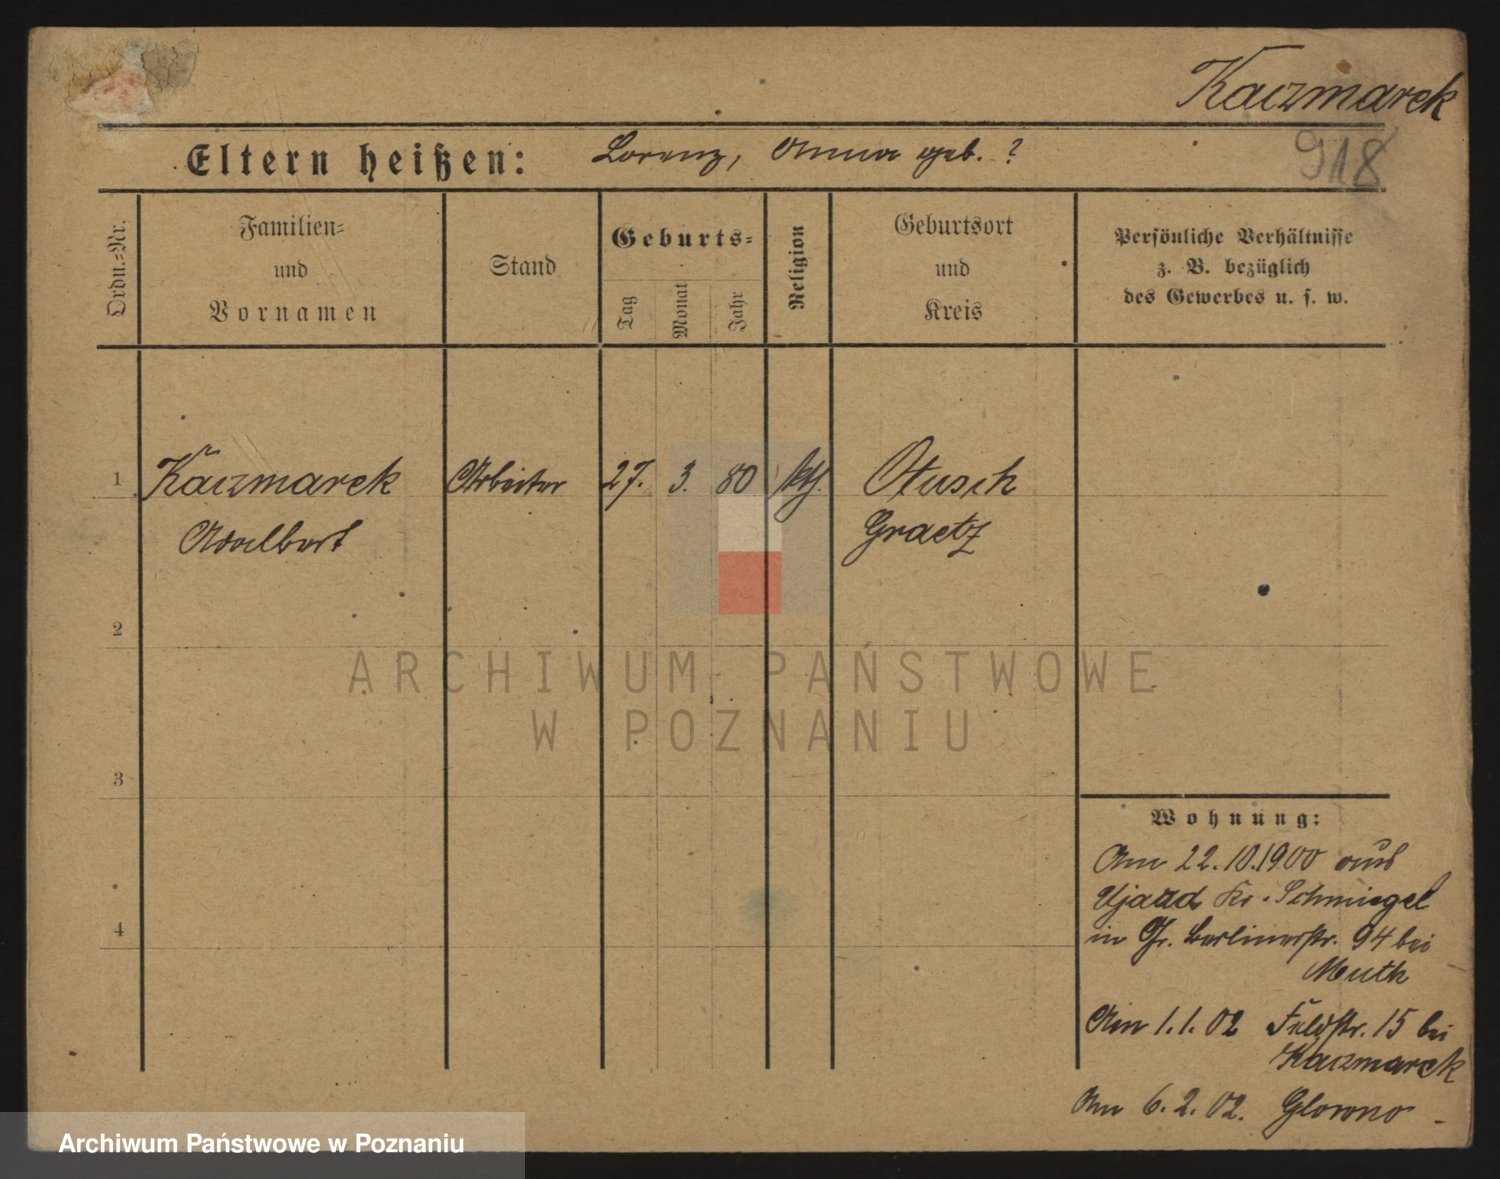 Kaczmarek
918
Eltern heißen: Lorenz, Anna geb. ?
Ordn.-Nr.
Familien-
und
Vornamen
Stand
Geburts-
Tag
Monat
Jahr
Religion
Geburtsort
und
Kreis
Persönliche Verhältnisse
z. B. bezüglich
des Gewerbes u. s. w.
1 Kaczmarek Arbeiter 27. 3. 80 kth. Otusch
Adalbert Graetz
2
3
4
Wohnung:
Am 22.10.1900 aus
Ujazd Kr. Schmiegel
in Gr. Berlinerstr. 94 bei
Muth
Am 1.1.02 Feldstr. 15 bei
Kaczmarek
Am 6.2.02. Glowno
ARCHIWUM PAŃSTWOWE
W POZNANIU
Archiwum Państwowe w Poznaniu